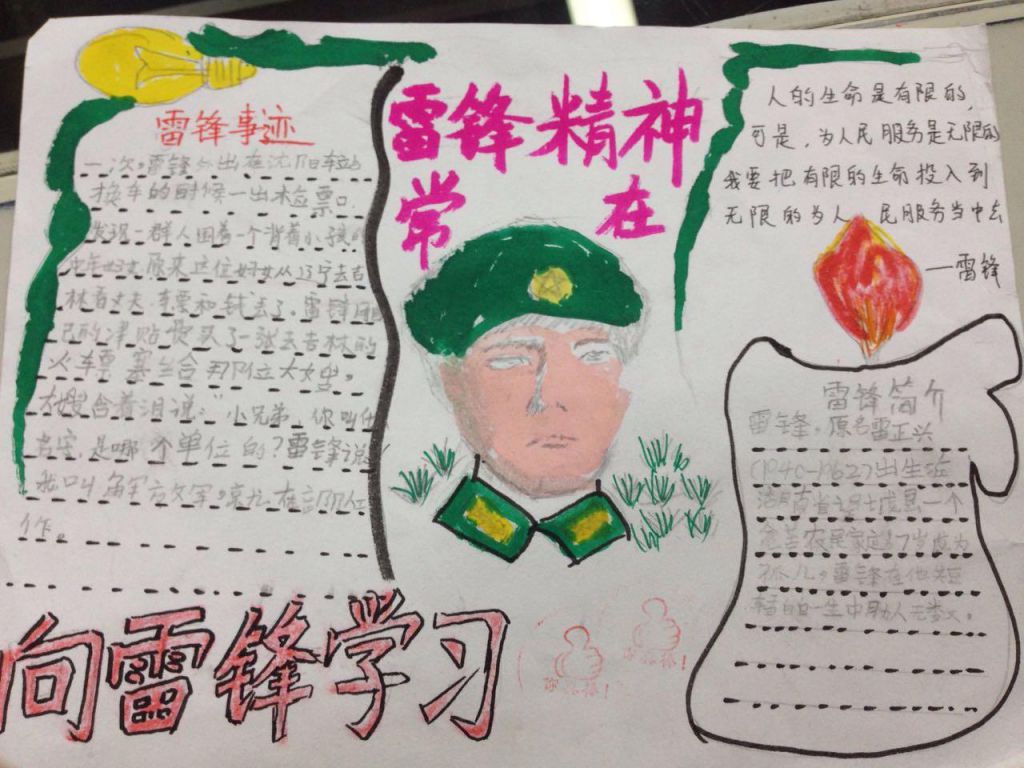 雷锋事迹
一次。雷锋外出在沈阳车站
换车的时候一出检票口,
发现一群人围着一个背着小孩的
中年妇女,原来这位妇女从辽宁去吉
林看丈夫,车票和钱丢了。雷锋用自
己的津贴费买了一张去吉林的
火车票塞给那位大嫂。
大嫂含着泪说:"小兄弟,你叫什
名字,是哪个单位的?雷锋说
我叫解放军,就在部队
作。
雷锋精神
常在
人的生命是有限的,
可是,为人民服务是无限的
我要把有限的生命投入到
无限的为人民服务当中去
—雷锋
雷锋简介
雷锋。原名雷正兴
(1940-1962)出生在
湖南省望城县一个
贫苦农民家庭7岁成为
孤儿。雷锋在他短
暂的一生中助人无数。
向雷锋学习
你真棒!
你真棒!